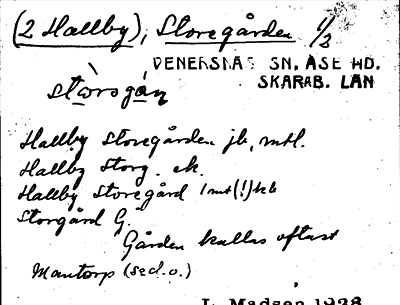 (2 Hallby), Storegården 1/2
VENERSNÄS SN, ÅSE HD.
SKARAB. LÄN
stòrsgán
Hallby Storegården jb, mtl.
Hallby Storg. ek.
Hallby Storegård 1 mt(!) kb
Storgård G.
Gården kallas oftast
Mantorp (se d.o.)
L. Madsen 1928